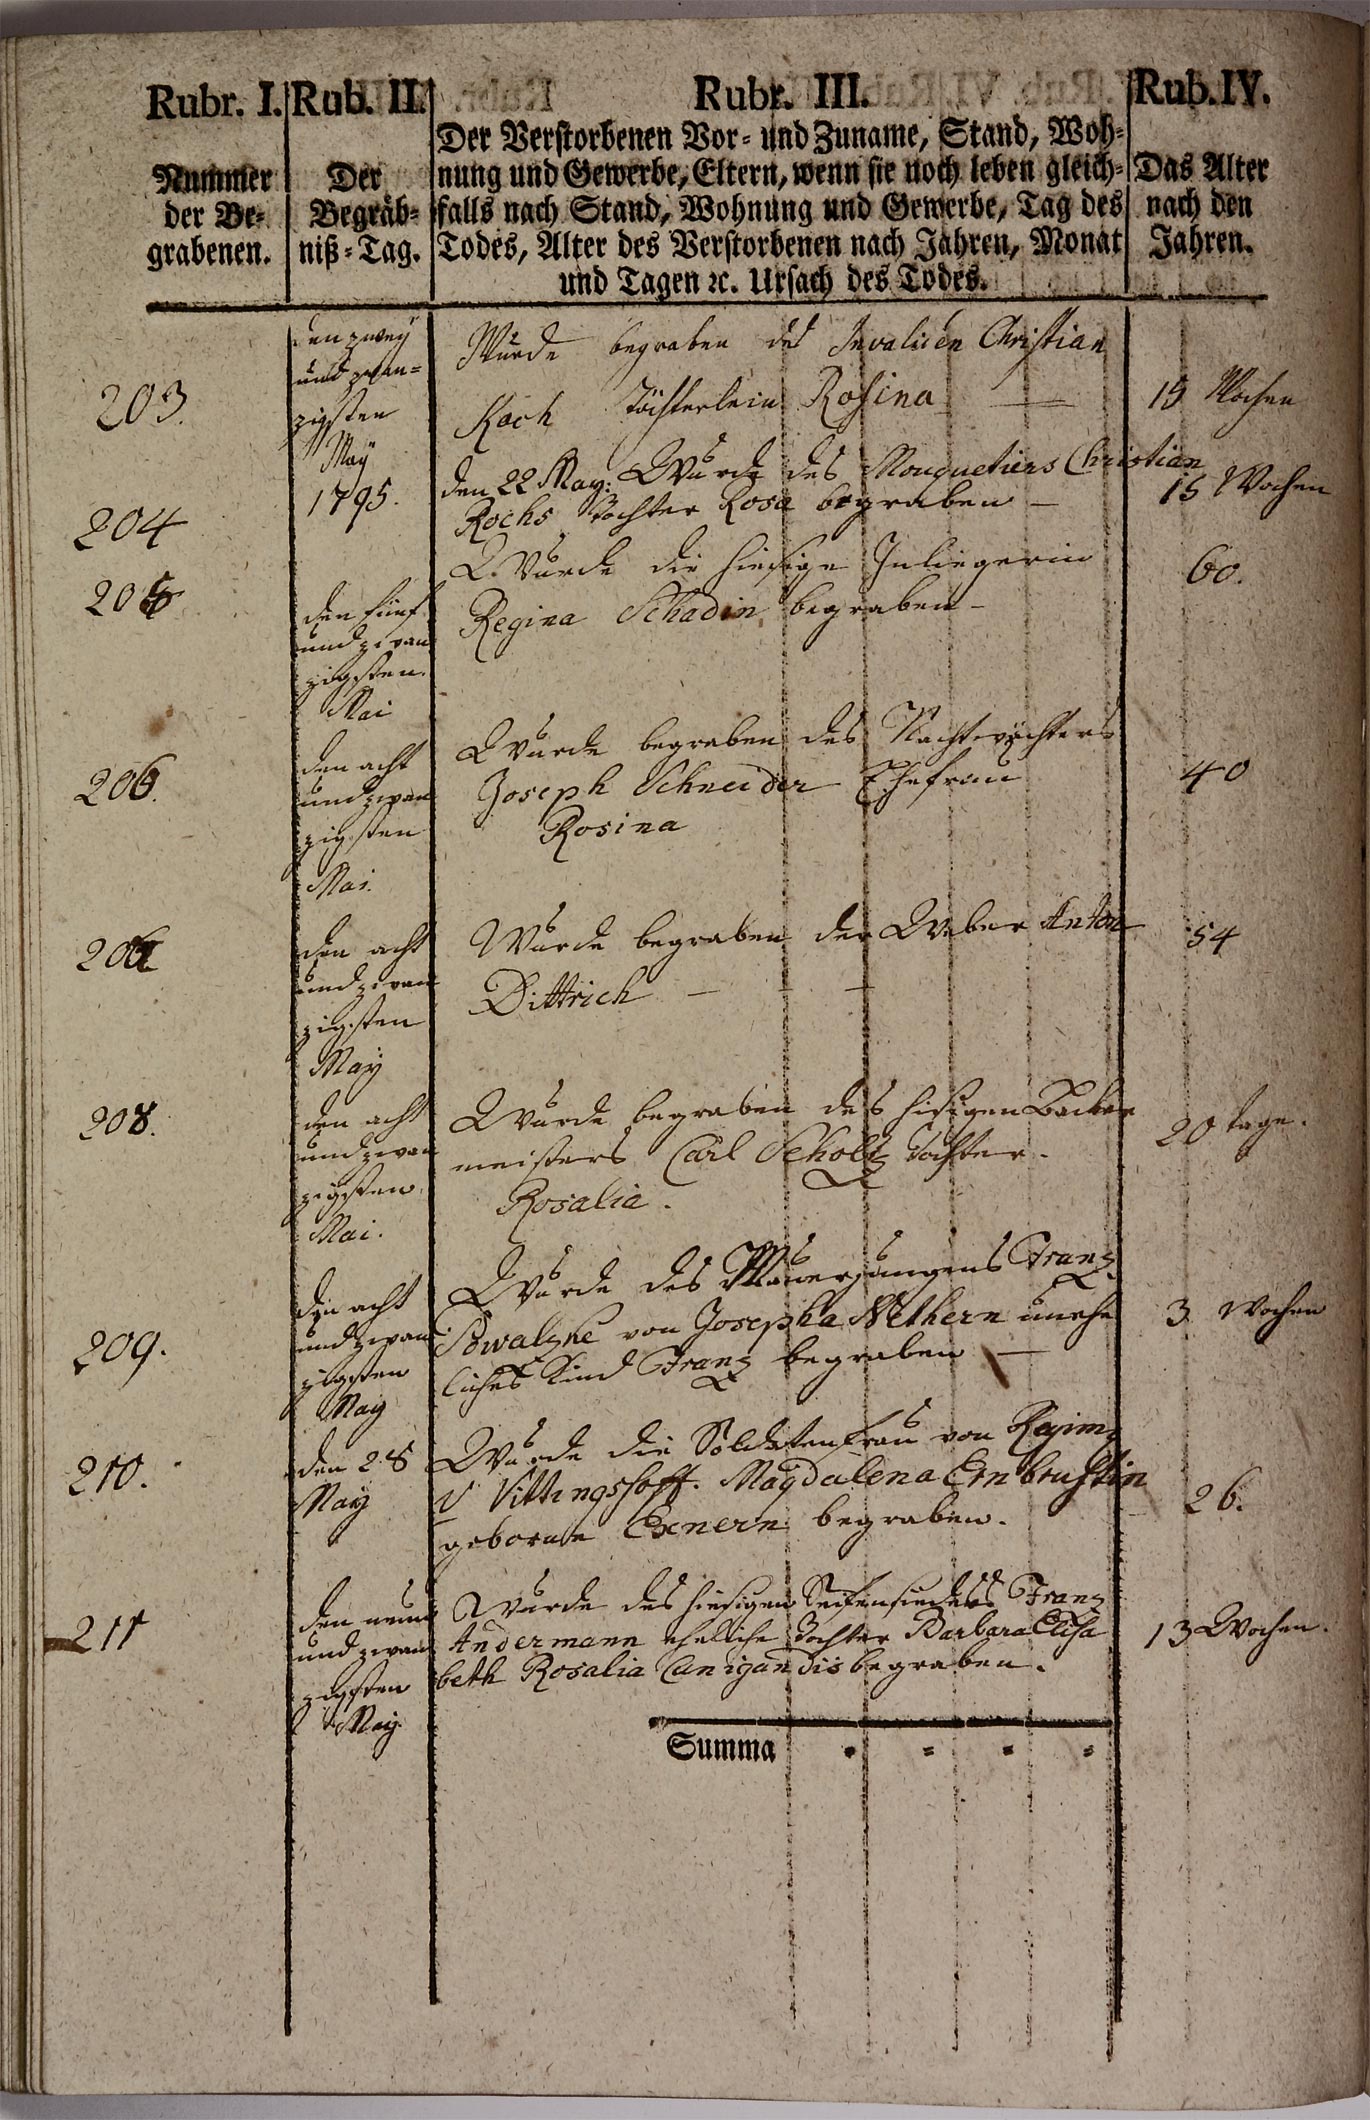 Rubr. I. Rub. II. Rubr. III. Rub. IV.
Nummer der Be= grabenen.
Der Begräb= niß=Tag.
Der Verstorbenen Vor= und Zuname, Stand, Woh=
nung und Gewerbe, Eltern, wenn sie noch leben gleich=
falls nach Stand, Wohnung und Gewerbe, Tag des
Todes, Alter des Verstorbenen nach Jahren, Monat
und Tagen ꝛc. Ursach des Todes.
Das Alter nach den Jahren.
203.
den zwey
und zwan=
zigsten
May
1795.
Wurde begraben des Invaliden Christian
Koch Töchterlein Rosina
15 Wochen
204
den 22 May: Wurde des Mousquetiers Christian
Kochs Tochter Rosa begraben
15 Wochen
205
den fünf
und zwan
zigsten
Mai
Wurde die hiesige Inliegerin
Regina Schadin begraben
60.
206.
den acht
und zwan
zigsten
Mai.
Wurde begraben des Nachtwächters
Joseph Schneider Ehefrau
Rosina
40
den acht
und zwan
zigsten
May
Wurde begraben der Weber Anton
Dittrich
54
208.
den acht
und zwan
zigsten
Mai.
Wurde begraben des hisigen Becker
meisters Carl Scholtz Tochter.
Rosalia.
20 tage.
209.
den acht
und zwan
zigsten
May
Wurde des Franz
von Josepha unehe
liches Kind Franz begraben
3 Wochen
210.
den 28
May
Wurde die Soldatenfrau von Regim
v Vittingshoff. Magdalena Ernbrustin
geborne Exnern begraben.
26.
211
den neun
und zwan
zigsten
May.
Wurde des hiesigen Seifensieders Franz
Andermann eheliche Tochter Barbara Elisa
beth Rosalia Canigundis begraben.
13 Wochen.
Summa